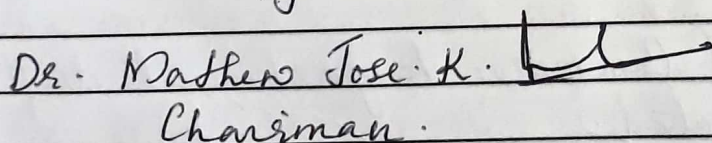 Dr. Mathew Jose. K.
Chairman.